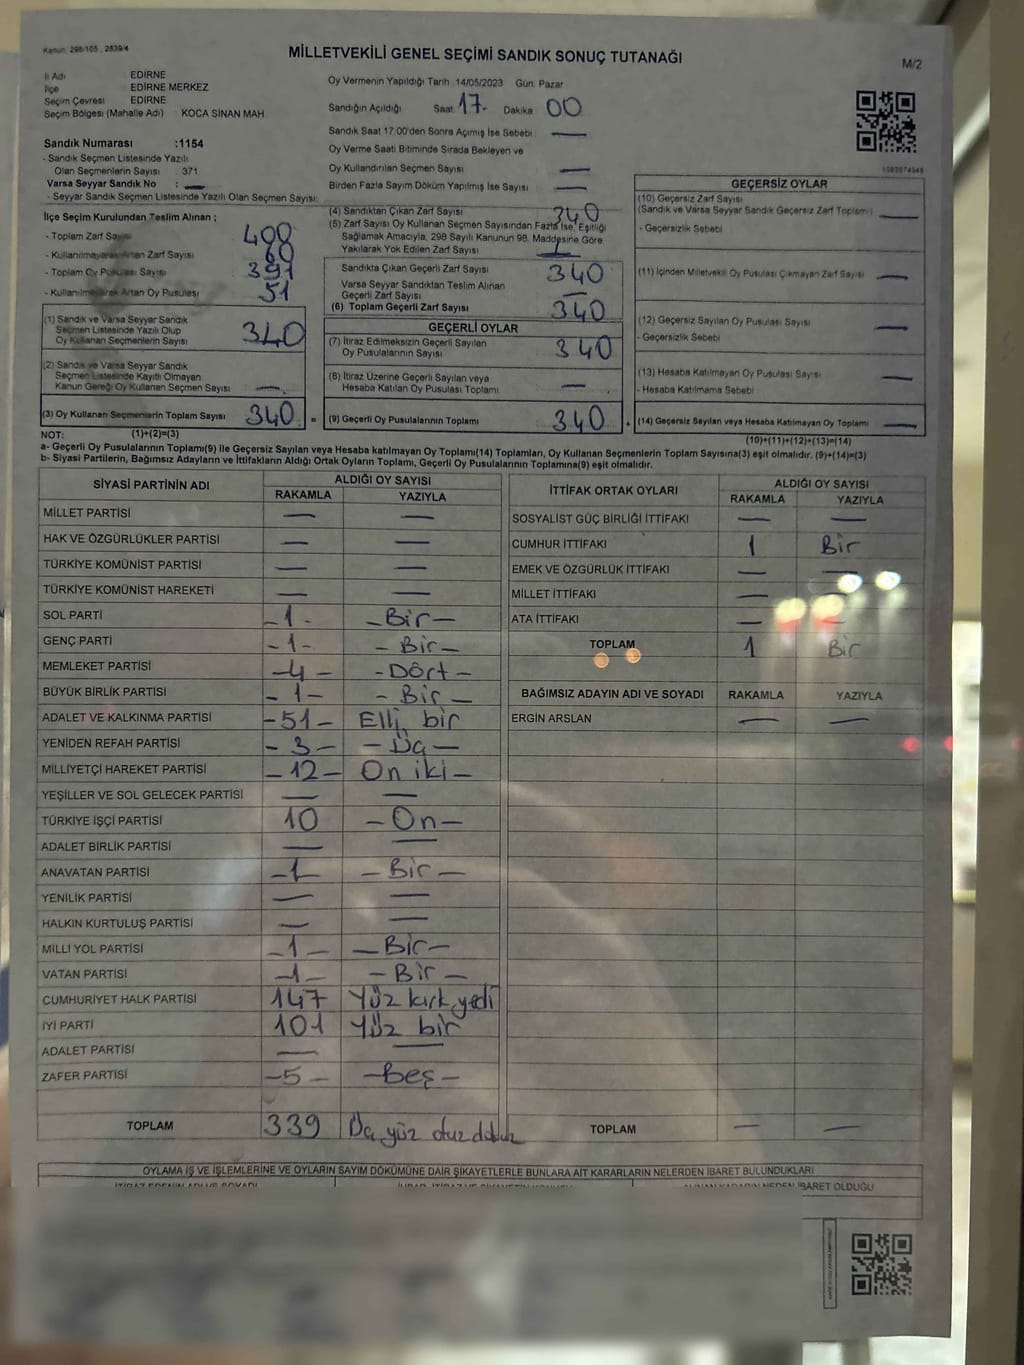 Kanun: 298/105, 2839/4
MİLLETVEKİLİ GENEL SEÇİMİ SANDIK SONUÇ TUTANAĞI
M/2
İl Adı EDİRNE
İlçe EDİRNE MERKEZ
Seçim Çevresi EDİRNE
Seçim Bölgesi (Mahalle Adı) KOCA SİNAN MAH
Oy Vermenin Yapıldığı Tarih 14/05/2023 Gün: Pazar
Sandığın Açıldığı Saat 17- Dakika 00
Sandık Saat 17:00'den Sonra Açılmış İse Sebebi —
Oy Verme Saati Bitiminde Sırada Bekleyen ve
Oy Kullandırılan Seçmen Sayısı —
Birden Fazla Sayım Döküm Yapılmış İse Sayısı —
Sandık Numarası :1154
- Sandık Seçmen Listesinde Yazılı
Olan Seçmenlerin Sayısı 371
Varsa Seyyar Sandık No : —
- Seyyar Sandık Seçmen Listesinde Yazılı Olan Seçmen Sayısı:
İlçe Seçim Kurulundan Teslim Alınan ;
- Toplam Zarf Sayısı
- Kullanılmayarak Artan Zarf Sayısı 60
- Toplam Oy Pusulası Sayısı 391
- Kullanılmayarak Artan Oy Pusulası 51
(1) Sandık ve Varsa Seyyar Sandık
Seçmen Listesinde Yazılı Olup
Oy Kullanan Seçmenlerin Sayısı 340
(2) Sandık ve Varsa Seyyar Sandık
Seçmen Listesinde Kayıtlı Olmayan
Kanun Gereği Oy Kullanan Seçmen Sayısı —
(3) Oy Kullanan Seçmenlerin Toplam Sayısı 340 =
(4) Sandıktan Çıkan Zarf Sayısı 340
(5) Zarf Sayısı Oy Kullanan Seçmen Sayısından Fazla İse, Eşitliği
Sağlamak Amacıyla, 298 Sayılı Kanunun 98. Maddesine Göre
Yakılarak Yok Edilen Zarf Sayısı
Sandıkta Çıkan Geçerli Zarf Sayısı 340
Varsa Seyyar Sandıktan Teslim Alınan
Geçerli Zarf Sayısı —
(6) Toplam Geçerli Zarf Sayısı 340
GEÇERLİ OYLAR
(7) İtiraz Edilmeksizin Geçerli Sayılan
Oy Pusulalarının Sayısı 340
(8) İtiraz Üzerine Geçerli Sayılan veya
Hesaba Katılan Oy Pusulası Toplamı —
(9) Geçerli Oy Pusulalarının Toplamı 340 +
GEÇERSİZ OYLAR
(10) Geçersiz Zarf Sayısı
(Sandık ve Varsa Seyyar Sandık Geçersiz Zarf Toplamı) —
- Geçersizlik Sebebi
(11) İçinden Milletvekili Oy Pusulası Çıkmayan Zarf Sayısı —
(12) Geçersiz Sayılan Oy Pusulası Sayısı —
- Geçersizlik Sebebi
(13) Hesaba Katılmayan Oy Pusulası Sayısı —
- Hesaba Katılmama Sebebi
(14) Geçersiz Sayılan veya Hesaba Katılmayan Oy Toplamı —
NOT: (1)+(2)=(3) (10)+(11)+(12)+(13)=(14)
a- Geçerli Oy Pusulalarının Toplamı(9) ile Geçersiz Sayılan veya Hesaba katılmayan Oy Toplamı(14) Toplamları, Oy Kullanan Seçmenlerin Toplam Sayısına(3) eşit olmalıdır. (9)+(14)=(3)
b- Siyasi Partilerin, Bağımsız Adayların ve İttifakların Aldığı Ortak Oyların Toplamı, Geçerli Oy Pusulalarının Toplamına(9) eşit olmalıdır.
SİYASİ PARTİNİN ADI ALDIĞI OY SAYISI
RAKAMLA YAZIYLA
MİLLET PARTİSİ — —
HAK VE ÖZGÜRLÜKLER PARTİSİ — —
TÜRKİYE KOMÜNİST PARTİSİ — —
TÜRKİYE KOMÜNİST HAREKETİ — —
SOL PARTİ -1- -Bir-
GENÇ PARTİ -1- -Bir-
MEMLEKET PARTİSİ -4- -Dört-
BÜYÜK BİRLİK PARTİSİ -1- -Bir-
ADALET VE KALKINMA PARTİSİ -51- Elli bir
YENİDEN REFAH PARTİSİ -3- -Üç-
MİLLİYETÇİ HAREKET PARTİSİ -12- On iki-
YEŞİLLER VE SOL GELECEK PARTİSİ — —
TÜRKİYE İŞÇİ PARTİSİ 10 -On-
ADALET BİRLİK PARTİSİ — —
ANAVATAN PARTİSİ -1- -Bir-
YENİLİK PARTİSİ — —
HALKIN KURTULUŞ PARTİSİ — —
MİLLİ YOL PARTİSİ -1- -Bir-
VATAN PARTİSİ -1- -Bir-
CUMHURİYET HALK PARTİSİ 147 Yüz kırk yedi
İYİ PARTİ 101 Yüz bir
ADALET PARTİSİ — —
ZAFER PARTİSİ -5- -Beş-
TOPLAM 339 Üç yüz otuz dokuz
İTTİFAK ORTAK OYLARI ALDIĞI OY SAYISI
RAKAMLA YAZIYLA
SOSYALİST GÜÇ BİRLİĞİ İTTİFAKI — —
CUMHUR İTTİFAKI 1 Bir
EMEK VE ÖZGÜRLÜK İTTİFAKI — —
MİLLET İTTİFAKI —
ATA İTTİFAKI — —
TOPLAM 1 Bir
BAĞIMSIZ ADAYIN ADI VE SOYADI RAKAMLA YAZIYLA
ERGİN ARSLAN — —
TOPLAM — —
OYLAMA İŞ VE İŞLEMLERİNE VE OYLARIN SAYIM DÖKÜMÜNE DAİR ŞİKAYETLERLE BUNLARA AİT KARARLARIN NELERDEN İBARET BULUNDUKLARI